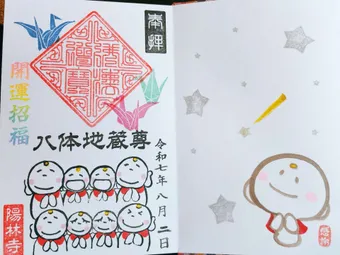 奉拝
開運招福
八体地蔵尊
令和七年八月二日
陽林寺
感謝